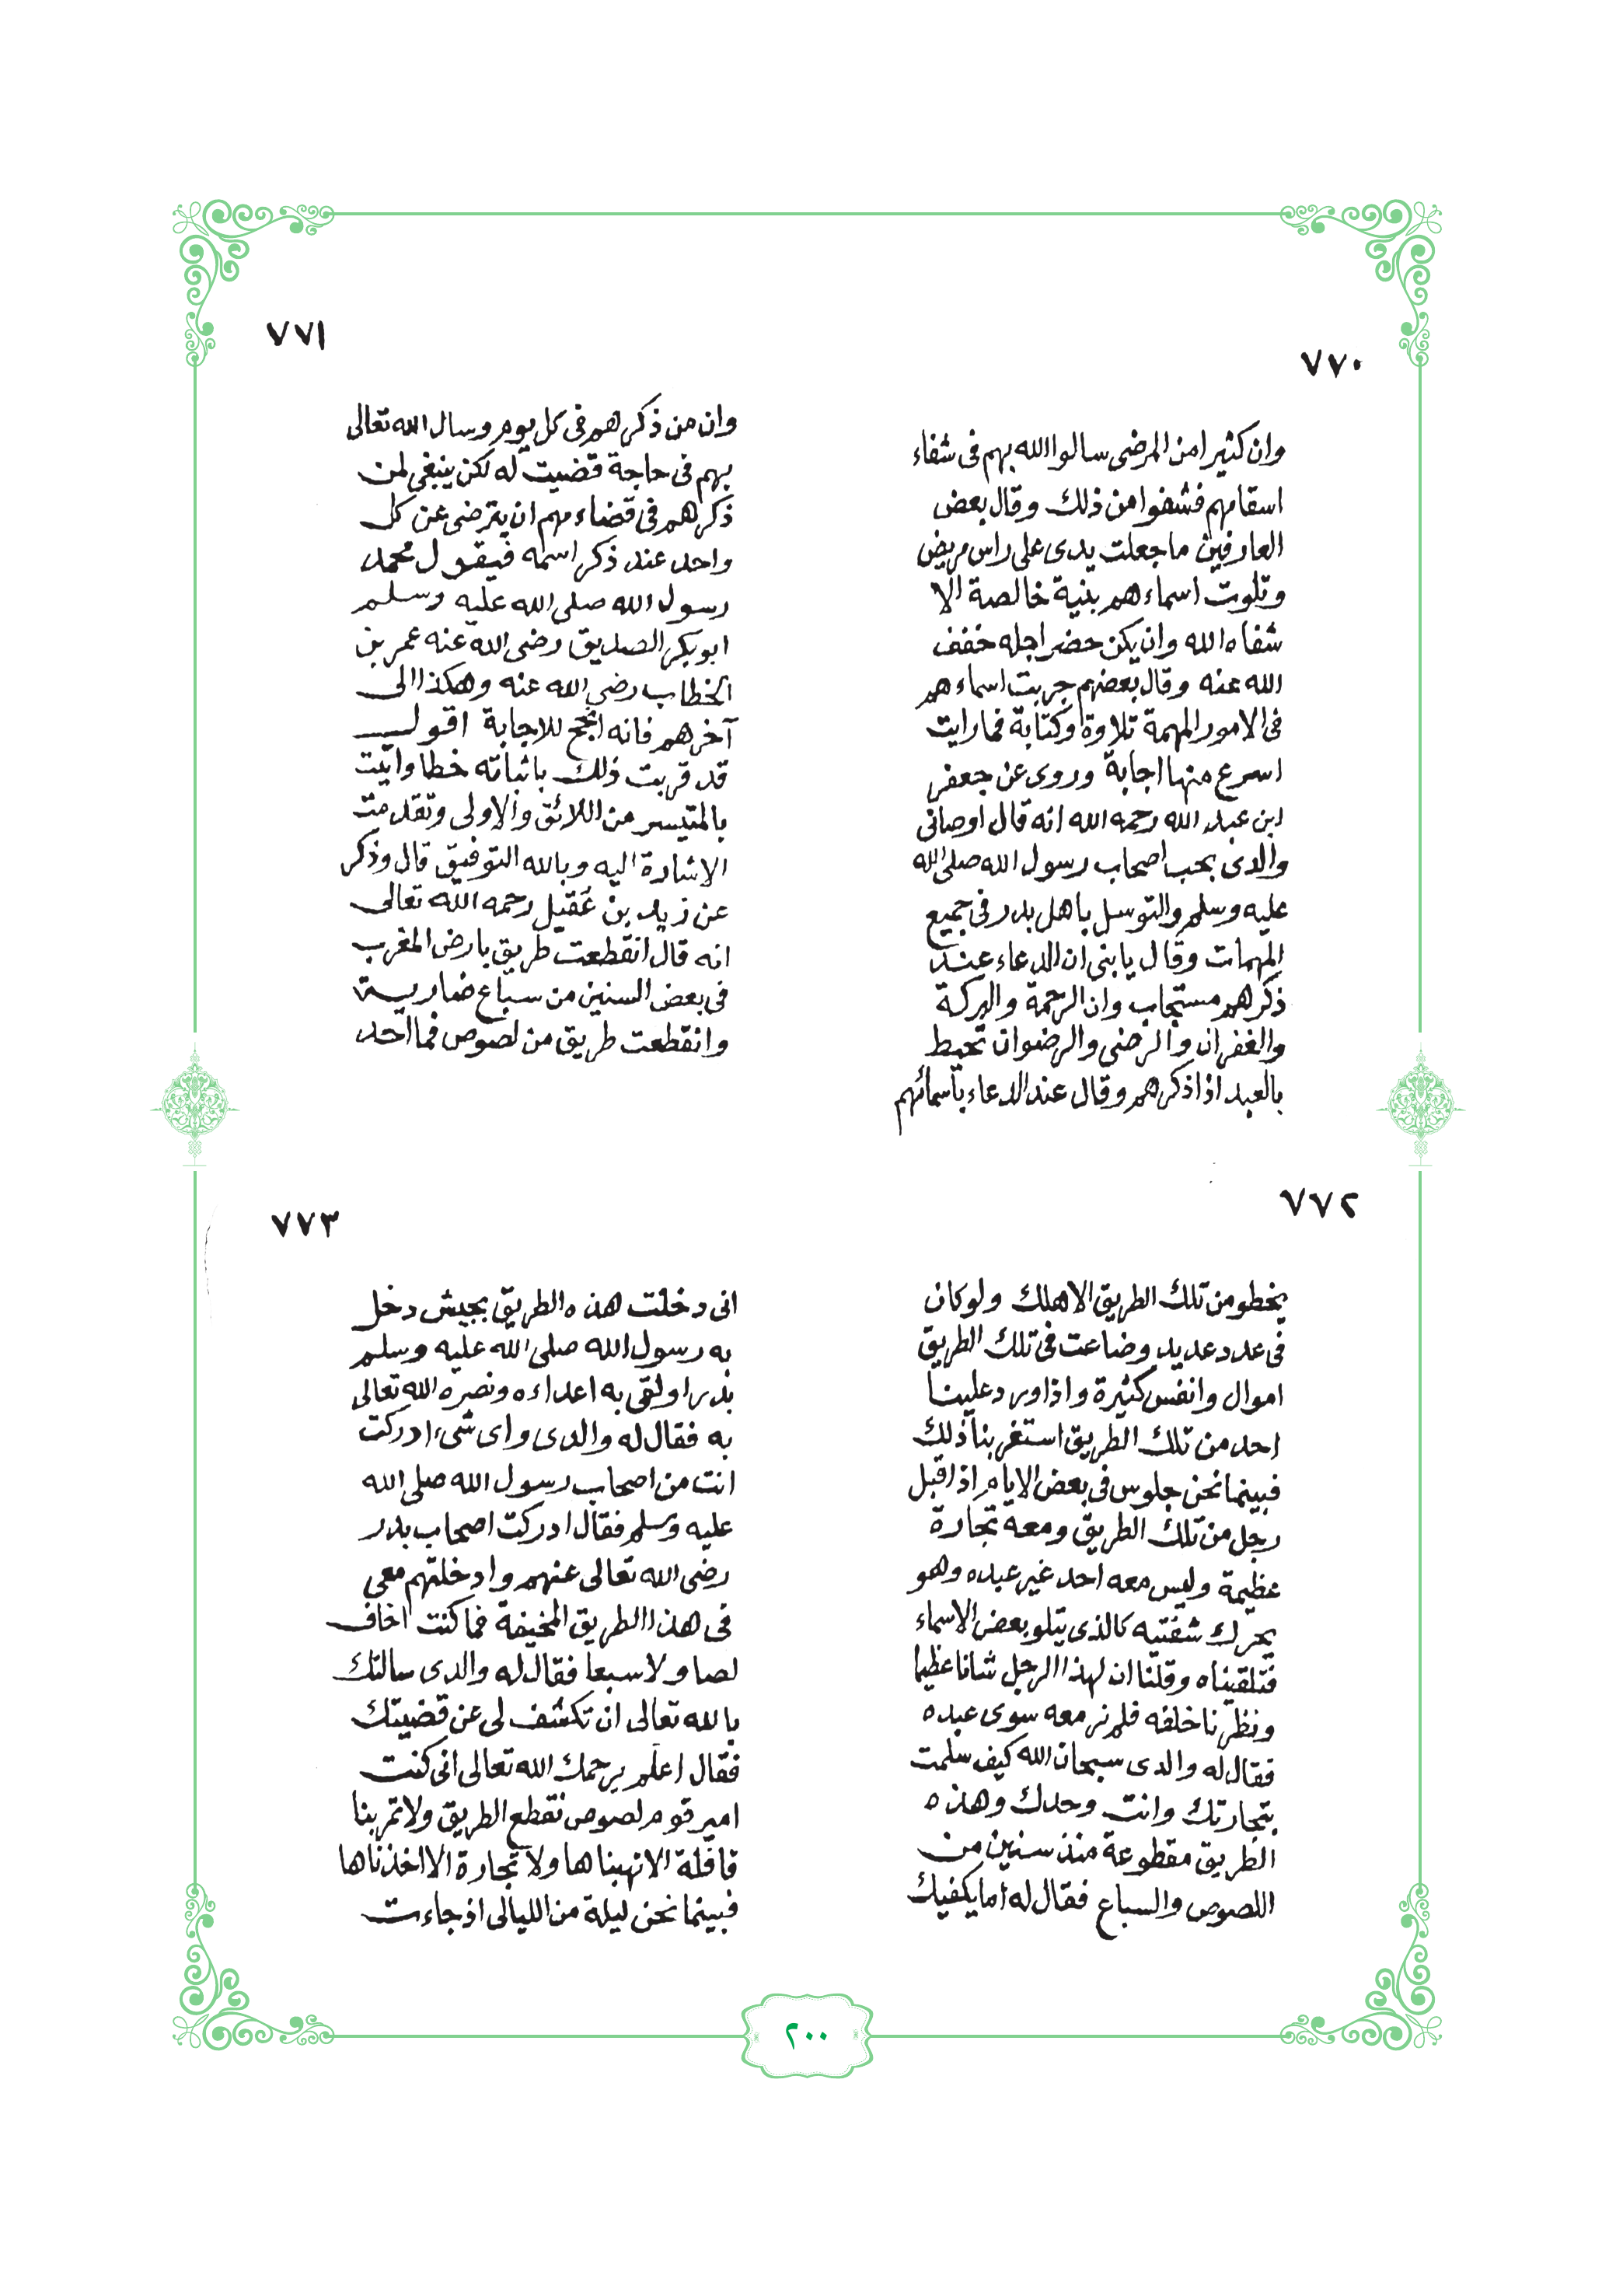 ٧٧٠
وان كثيرا من المرضى سالوا الله بهم فى شفاء
اسقامهم فشفوا من ذلك وقال بعض
العارفين ما جعلت يدى على راس مريض
وتلوت اسماءهم بنية خالصة الا
شفاه الله وان يكن حضر اجله خفف
الله عنه وقال بعضهم جربت اسماءهم
فى الامور المهمة تلاوة وكتابة فما رايت
اسرع منها اجابة وروى عن جعفر
ابن عبد الله رحمه الله انه قال اوصانى
والدى بحب اصحاب رسول الله صلى الله
عليه وسلم والتوسل باهل بدر فى جميع
المهمات وقال يا بنى ان الدعاء عند
ذكرهم مستجاب وان الرحمة والبركة
والغفران والرضى والرضوان تحيط
بالعبد اذا ذكرهم وقال عند الدعاء بأسمائهم
٧٧١
وان من ذكرهم فى كل يوم وسال الله تعالى
بهم فى حاجة قضيت له لكن ينبغى لمن
ذكرهم فى قضاء مهم ان يترضى عن كل
واحد عند ذكر اسمه فيقول محمد
رسول الله صلى الله عليه وسلم
ابو بكر الصديق رضى الله عنه عمر بن
الخطاب رضى الله عنه وهكذا الى
آخرهم فانه انجح للاجابة اقول
قد قربت ذلك باثباته خطا وابنت
بالمتيسر من اللائق والاولى وتقدمت
الاشارة اليه وبالله التوفيق قال وذكر
عن زيد بن عَقيل رحمه الله تعالى
انه قال انقطعت طريق بارض المغرب
فى بعض السنين من سباع ضارية
وانقطعت طريق من لصوص فما احد
٧٧٢
يخطو من تلك الطريق الا هلك ولو كان
فى عدد عديد وضاعت فى تلك الطريق
اموال وانفس كثيرة واذا ورد علينا
احد من تلك الطريق استغربنا ذلك
فبينما نحن جلوس فى بعض الايام اذ اقبل
رجل من تلك الطريق ومعه تجارة
عظيمة وليس معه احد غير عبده وهو
يحرك شفتيه كالذى يتلو بعض الاسماء
فتلقيناه وقلنا ان لهذا الرجل شانا عظيما
ونظرنا خلفه فلم نر معه سوى عبده
فقال له والدى سبحان الله كيف سلمت
بتجارتك وانت وحدك وهذه
الطريق مقطوعة منذ سنين من
اللصوص والسباع فقال له اما يكفيك
٧٧٣
انى دخلت هذه الطريق بجيش دخل
به رسول الله صلى الله عليه وسلم
بدرا ولقى به اعداءه ونصره الله تعالى
به فقال له والدى واى شىء ادركت
انت من اصحاب رسول الله صلى الله
عليه وسلم فقال ادركت اصحاب بدر
رضى الله تعالى عنهم وادخلتهم معى
فى هذا الطريق المخيفة فما كنت اخاف
لصا ولا سبعا فقال له والدى سالتك
بالله تعالى ان تكشف لى عن قضيتك
فقال اعلم يرحمك الله تعالى انى كنت
امير قوم لصوص نقطع الطريق ولا تمر بنا
قافلة الا نهبناها ولا تجارة الا اخذناها
فبينما نحن ليلة من الليالى اذ جاءت
٢٠٠